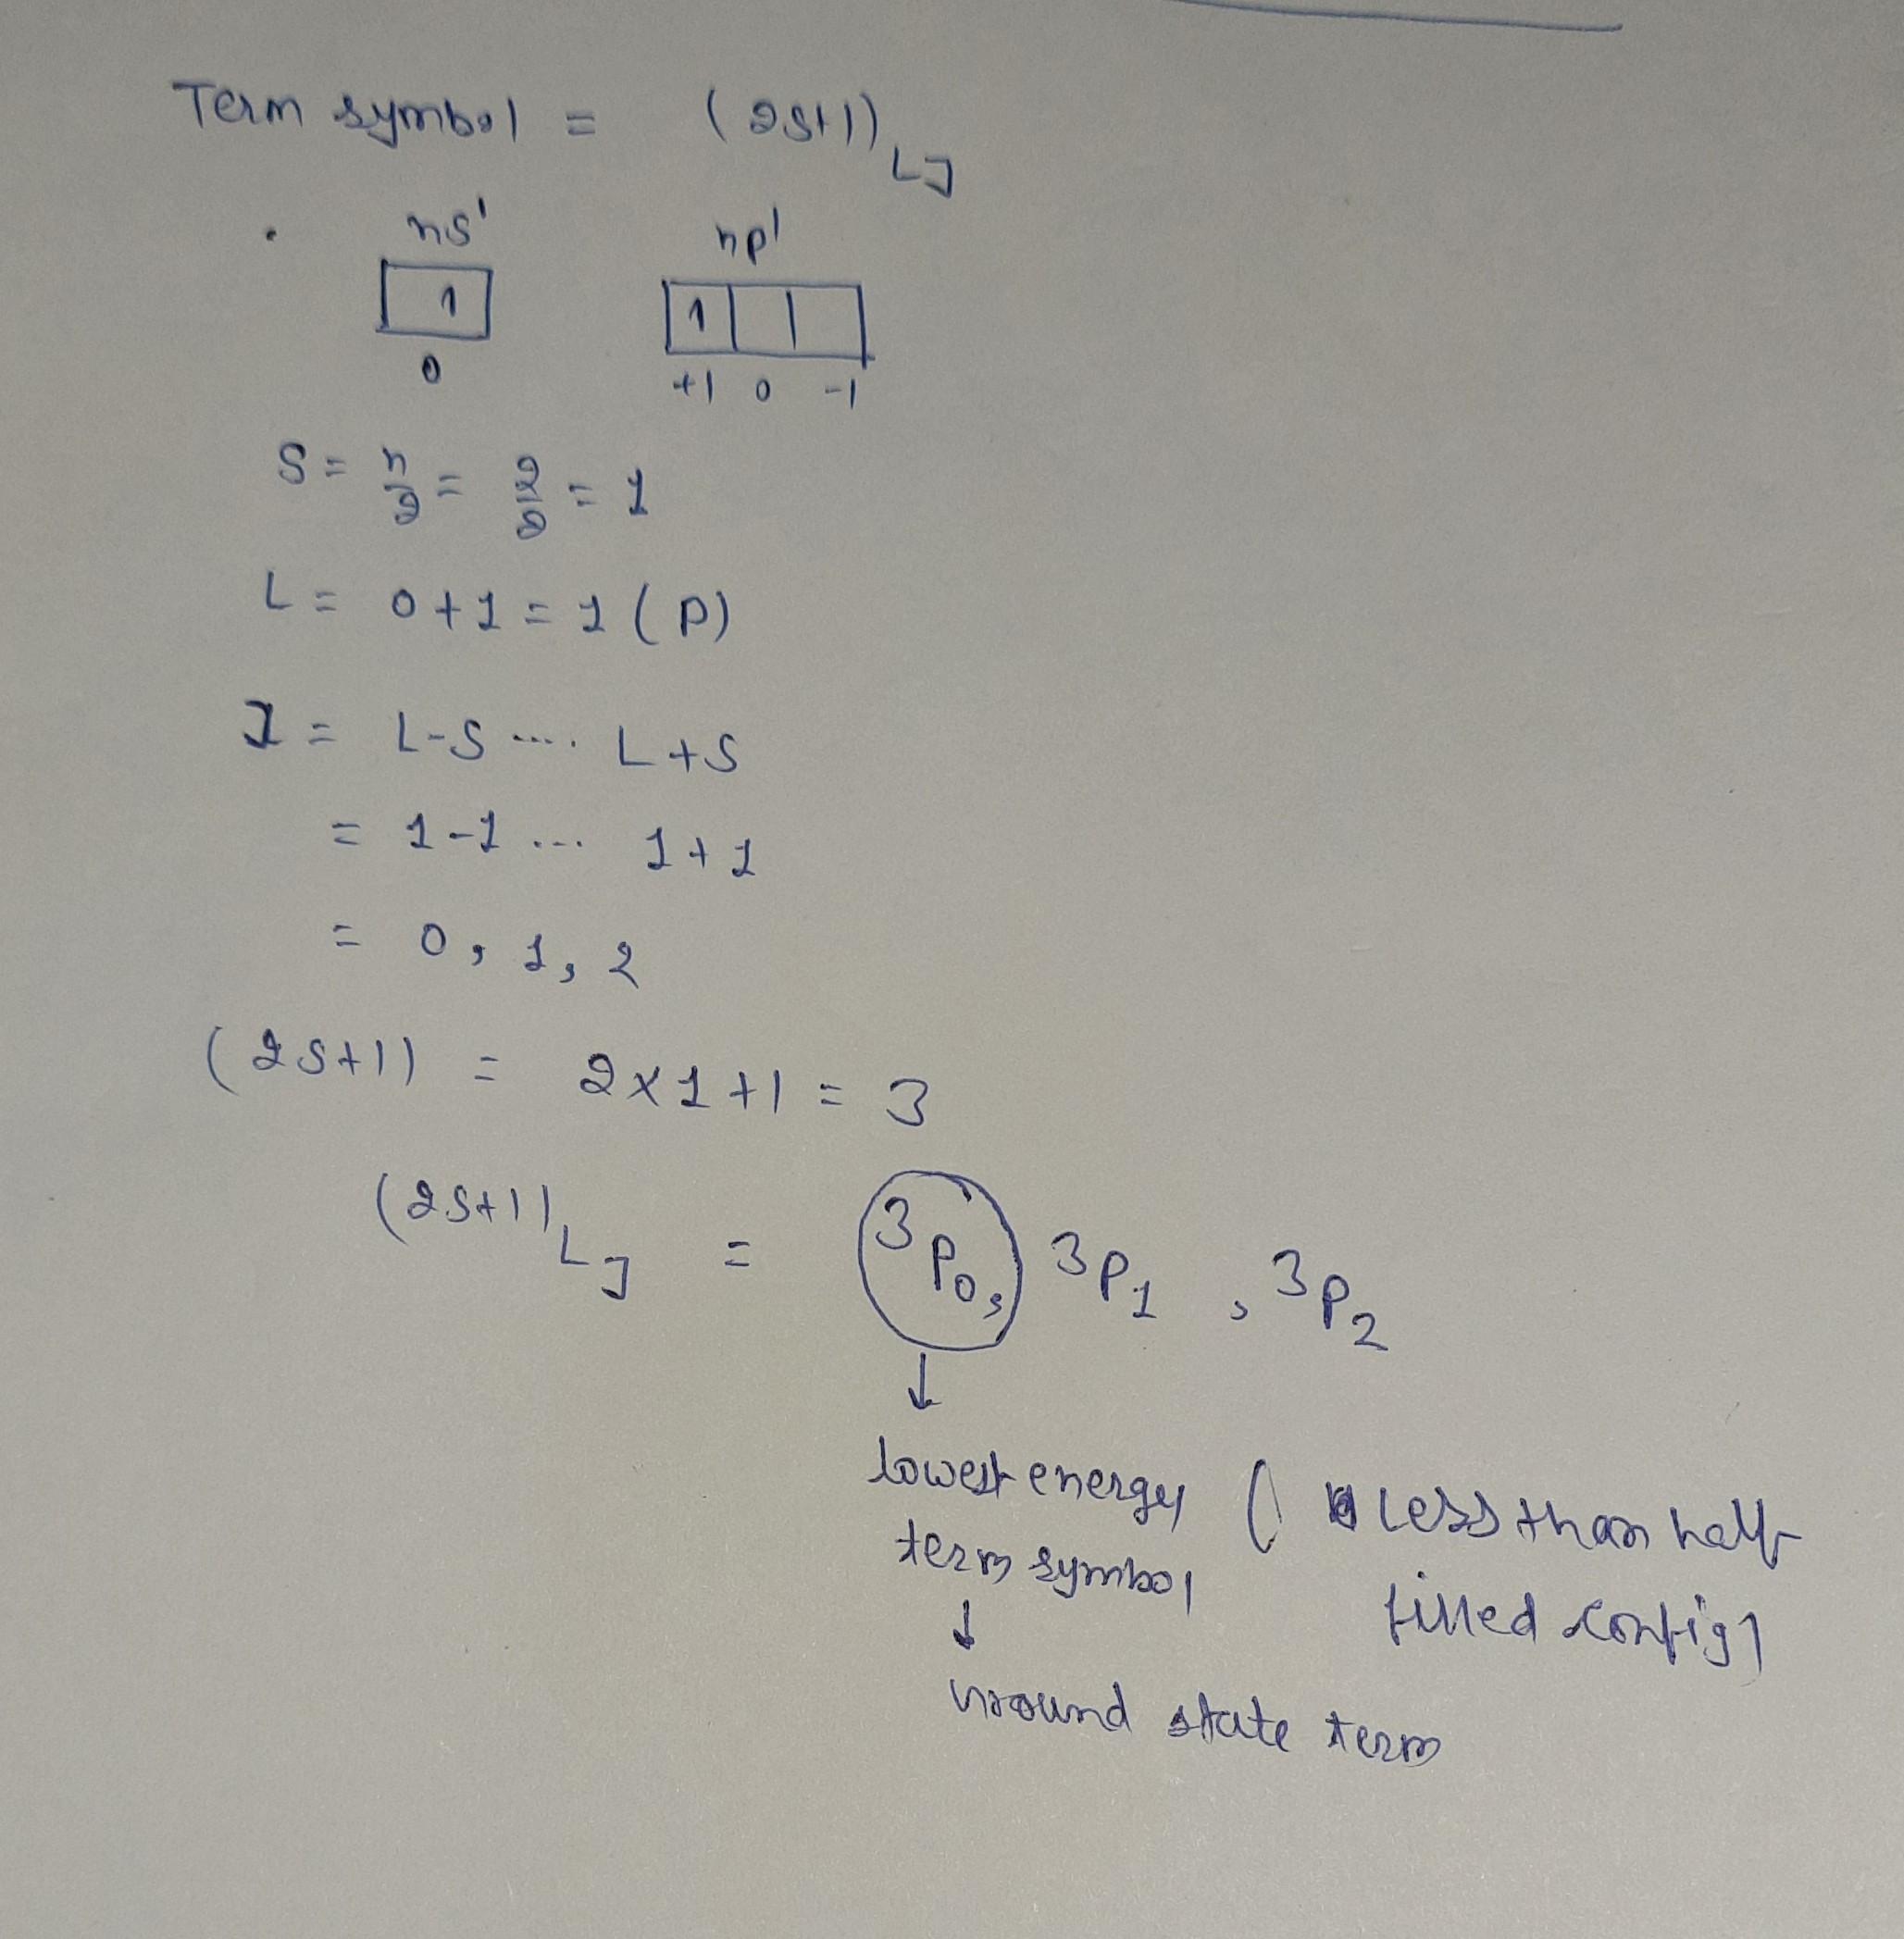 Term symbol = (2S+1) L J
ns¹ np¹
1 1
0 +1 0 -1
S = n/2 = 2/2 = 1
L = 0+1 = 1 (P)
J = L-S .... L+S
= 1-1 ... 1+1
= 0, 1, 2
(2S+1) = 2×1+1 = 3
(2S+1) L J = ³P₀, ³P₁, ³P₂
↓
lowest energy ( less than half
term symbol filled config)
↓
Ground state term